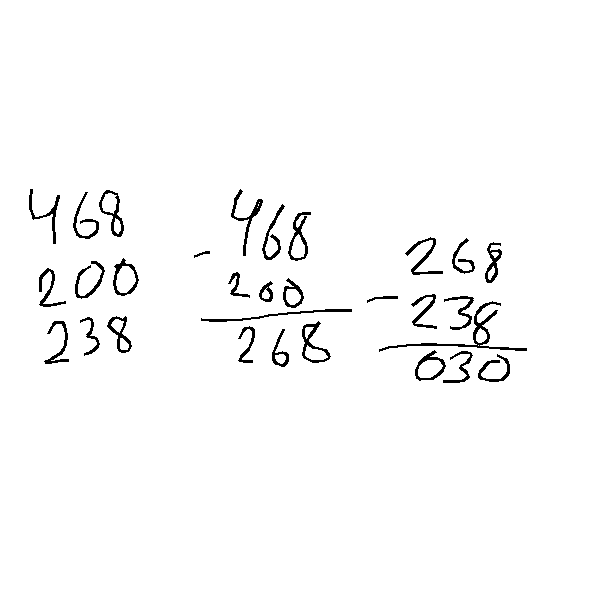 468
200
238
- 468
200
268
268
- 238
030